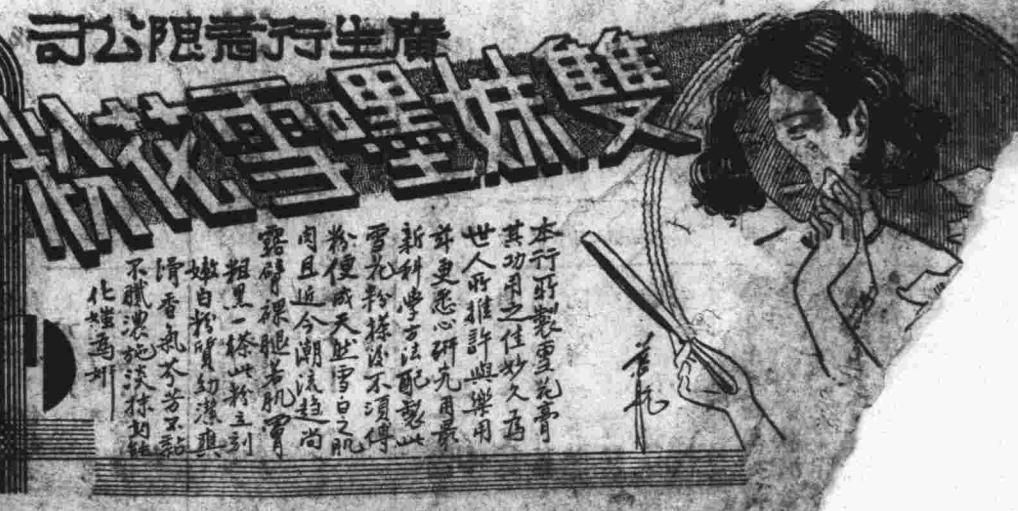 廣生行有限公司
雙妹嚜雪花粉
本行所製雪花膏
其功用之佳妙久為
世人所推許與樂用
茲更悉心研究用最
新科學方法配製此
雪花粉搽後不須傅
粉便成天然雪白之肌
肉且近今潮流趨尚
露臂裸腿若肌膚
粗黑一搽此粉立刻
嫩白粉質幼潔爽
滑香氣芬芳不黏
不膩濃施淡抹均能
化媸為妍